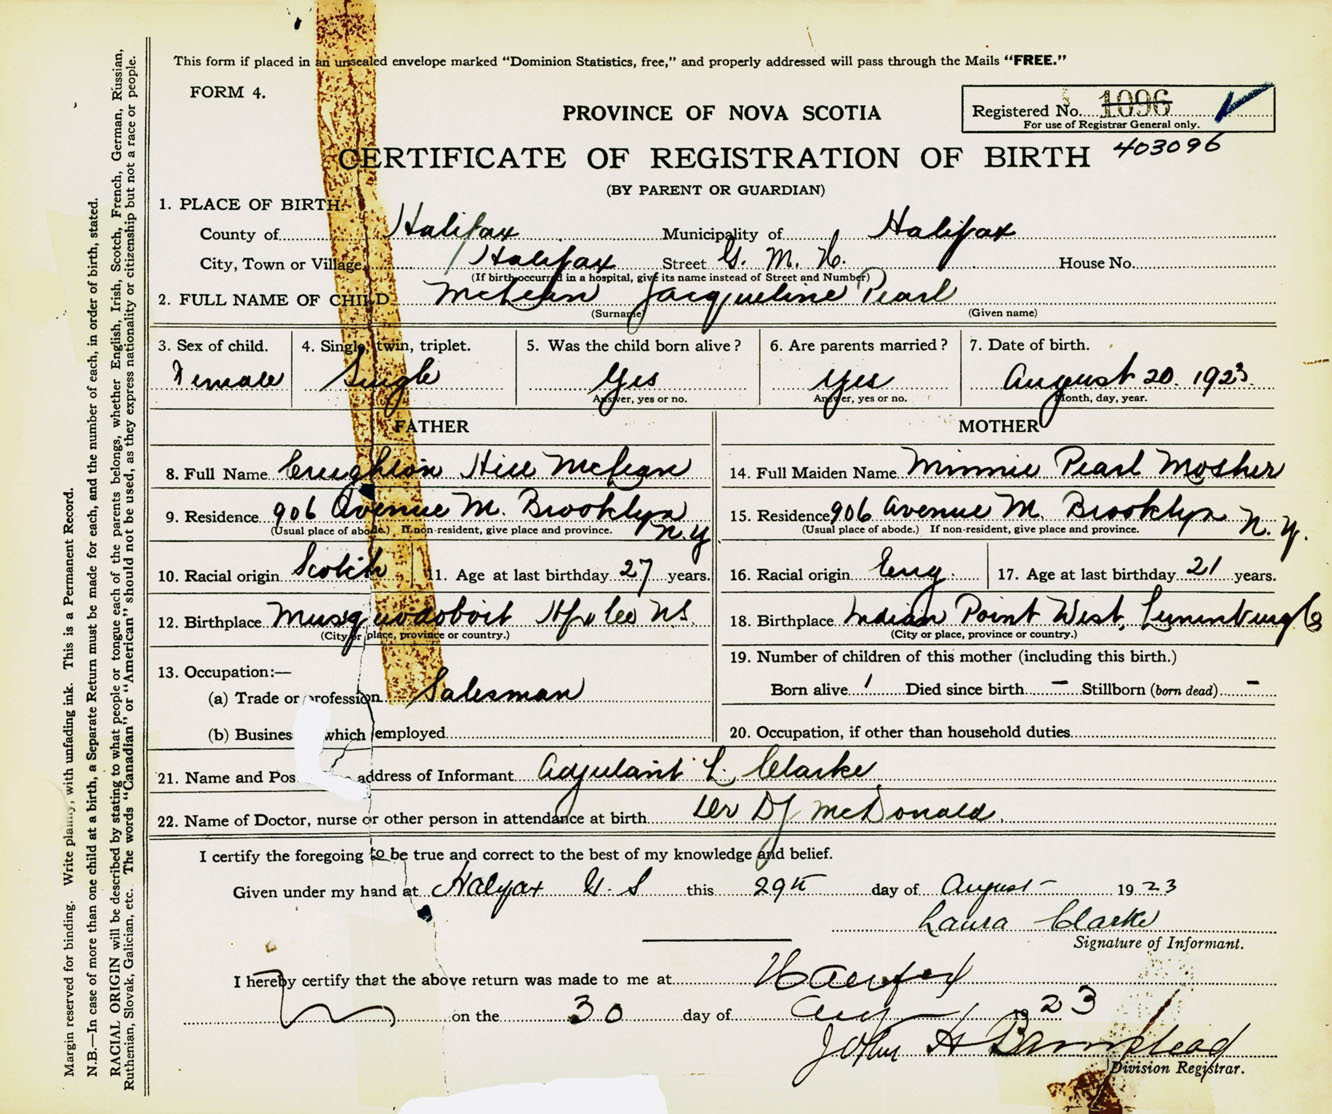 This form if placed in an unsealed envelope marked "Dominion Statistics, free," and properly addressed will pass through the Mails "FREE."
FORM 4.
PROVINCE OF NOVA SCOTIA
Registered No. 1096
For use of Registrar General only.
403096
CERTIFICATE OF REGISTRATION OF BIRTH
(BY PARENT OR GUARDIAN)
1. PLACE OF BIRTH:-
County of Halifax Municipality of Halifax
City, Town or Village Halifax Street G. M. H. House No.
(If birth occurred in a hospital, give its name instead of Street and Number)
2. FULL NAME OF CHILD McLean Jacqueline Pearl
(Surname) (Given name)
3. Sex of child. 4. Single, twin, triplet. 5. Was the child born alive? 6. Are parents married? 7. Date of birth.
Female Single Yes Yes August 20. 1923
Answer, yes or no. Answer, yes or no. Month, day, year.
FATHER MOTHER
8. Full Name Creighton Hill McLean 14. Full Maiden Name Minnie Pearl Mosher
9. Residence 906 Avenue M. Brooklyn N.Y 15. Residence 906 Avenue M. Brooklyn N.Y.
(Usual place of abode.) If non-resident, give place and province. (Usual place of abode.) If non-resident, give place and province.
10. Racial origin Scotch 11. Age at last birthday 27 years. 16. Racial origin Eng. 17. Age at last birthday 21 years.
12. Birthplace Musquodoboit Hfx Co N.S. 18. Birthplace Indian Point West, Lunenburg Co
(City or place, province or country.) (City or place, province or country.)
13. Occupation:— 19. Number of children of this mother (including this birth.)
(a) Trade or profession Salesman Born alive 1 Died since birth — Stillborn (born dead) -
(b) Business which employed 20. Occupation, if other than household duties
21. Name and Pos address of Informant Adjutant L. Clarke
22. Name of Doctor, nurse or other person in attendance at birth Dr DJ McDonald.
I certify the foregoing to be true and correct to the best of my knowledge and belief.
Given under my hand at Halifax N.S this 29th day of August 1923
Laura Clarke
Signature of Informant.
I hereby certify that the above return was made to me at Halifax
on the 30 day of Aug 23
John H Barnstead
Division Registrar.
Margin reserved for binding. Write plainly, with unfading ink. This is a Permanent Record.
N.B.—In case of more than one child at a birth, a Separate Return must be made for each, and the number of each, in order of birth, stated.
RACIAL ORIGIN will be described by stating to what people or tongue each of the parents belongs, whether English, Irish, Scotch, French, German, Russian,
Ruthenian, Slovak, Galician, etc. The words "Canadian" or "American" should not be used, as they express nationality or citizenship but not a race or people.